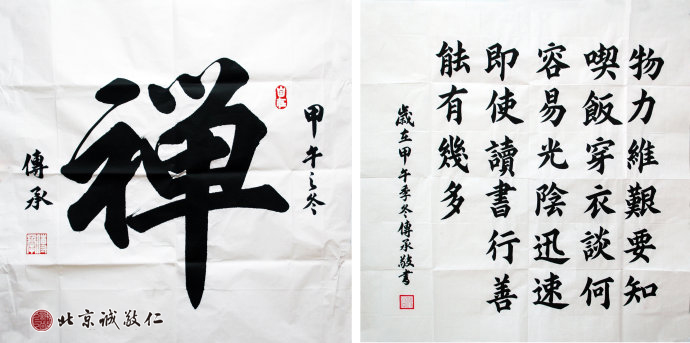 甲午之冬
禅
傳承
北京诚敬仁
物力維艱要知
喫飯穿衣談何
容易光陰迅速
即使讀書行善
能有幾多
歲在甲午季冬傳承敬書